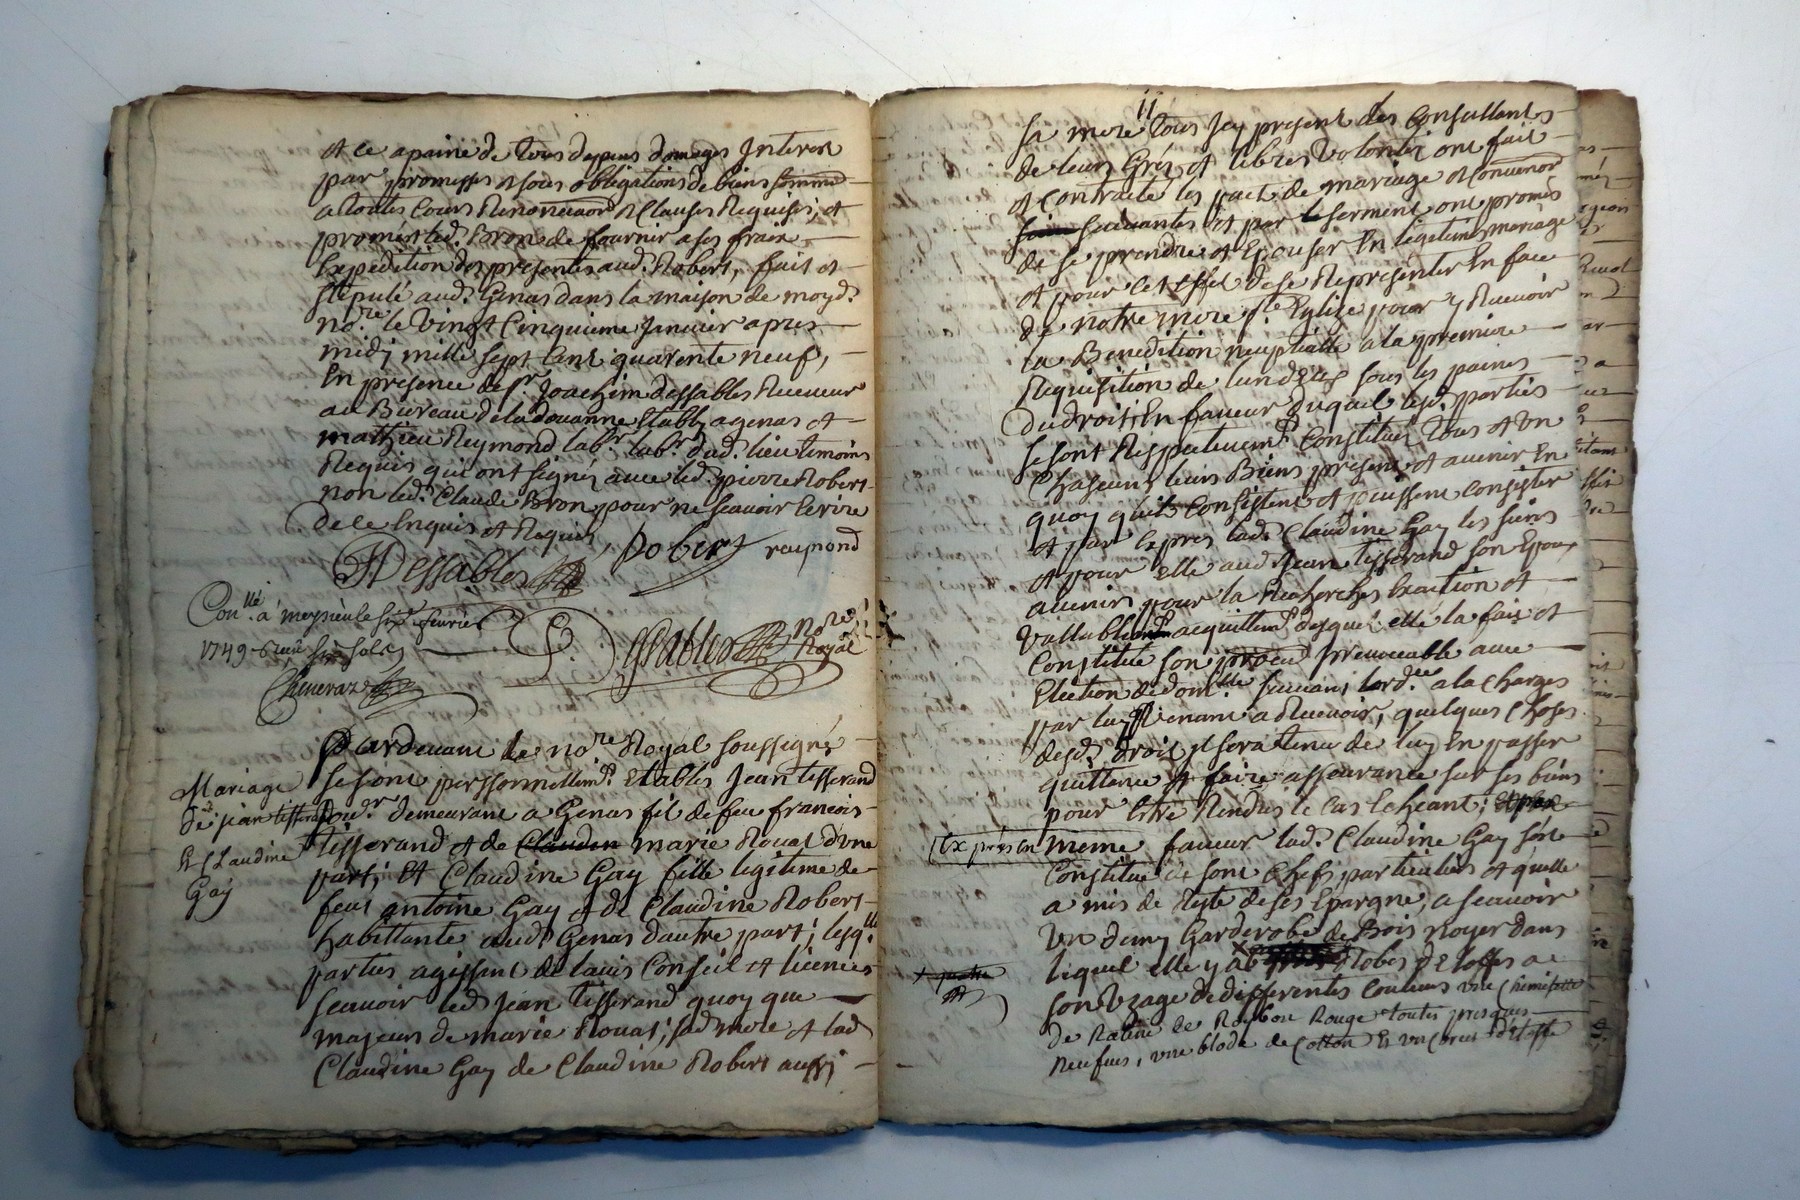 et ce a paine de tous depens domages Interest
par promesses et sous obligations de biens
a toutes Cours Renonciaôns et Clauses Requises, et
promis led. Bron de fournir a ses fraix
Expedition des presentes aud. Robert, fait et
stipulé aud. Genas dans la maison de moyd.
no.re le Vingt Cinquieme Janvier apres
midy mille sept cent quarente neuf,
En presence de sr. Joachim Dessables Receveur
au Bureau de la douanne Etably a genas et
mathieu Reymond lab.r dud. lieu temoins
Requis qui ont signés avec led. pierre Robert
non led. Claude Bron pour ne scavoir Ecrire
de ce Enquis et Requis
Dessables Robert reymond
Con.llé a meysieu le six fevrier
1749 Reçu six sols
Dessables no.re Royal
Cheneraz
Pardevant le no.re Royal soussigné
Mariage
de jean tisserand
Et Claudine
Gay
se sont personnellem.t Etablis Jean tisserand
demeurant a Genas fils de feu francois
tisserand et de Claudine marie Rouat d'vne
part, Et Claudine Gay fille legitime de
feus antoine Gay et de Claudine Robert
habittante aud. Genas dautre part, lesq.lles
parties agissant de lauis Conseil et licences
scavoir led. Jean tisserand quoy que
majeur de marie Rouat, sad. mere et lad.
Claudine Gay de Claudine Robert aussi
11
sa mere tous Icy present les Consultants
de leurs Grés et libres Volontés ont fait
et Contracté les pact de mariage et Convenôns
suivantes Et par serment ont promis
de se prendre et Epouser En legitime mariage
et pour cet Effet de se Representer En face
de notre mere s.te Eglise pour y Recevoir
la Benediction nuptialle a la premiere
Requisition de lun deux sous les paines
du droit En faveur duquel lesd. parties
se sont Respectivem.t Constitués tous et Vn
Chascuns leurs Biens present et avenir En
quoy quils Consistent et puissent Consister
et par Expres lad. Claudine Gay les siens
et pour Elle aud. Jean tisserand son Epoux
avenir pour la Recherches Exaction et
Vallable acquittem.t desquels elle la fait et
Constitue son procur Irrevocable avec
Election de dom.lle suivant lord.ce a la Charges
par luy Venant a Recevoir, quelques Choses
desd. droit, Il sera tenu de luy En passer
quittance et faire assurance sur ses biens
pour Etre Rendus le Cas Echeant,
Expres En meme faveur lad. Claudine Gay sest
Constituée de sont Chefs particulier et quelle
a mis de Reste de ses Epargne, a scavoir
Vn demy Garderobe de Bois noyer dans
lequel elle y a Robes de toffes a
son Vzage de differentes Couleurs vne Chemisette
de Ratine de Roybon Rouge toutes presques
neufves, vne blode de Cotton Et vn Corcet détoffe